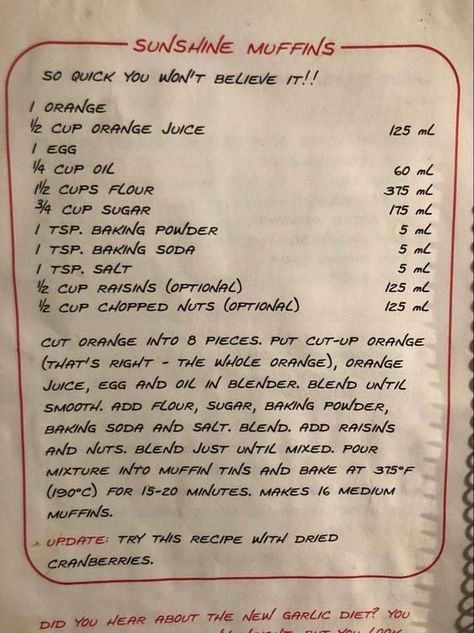 SUNSHINE MUFFINS
SO QUICK YOU WON'T BELIEVE IT!!
1 ORANGE
½ CUP ORANGE JUICE 125 mL
1 EGG
¼ CUP OIL 60 mL
1½ CUPS FLOUR 375 mL
¾ CUP SUGAR 175 mL
1 TSP. BAKING POWDER 5 mL
1 TSP. BAKING SODA 5 mL
1 TSP. SALT 5 mL
½ CUP RAISINS (OPTIONAL) 125 mL
½ CUP CHOPPED NUTS (OPTIONAL) 125 mL
CUT ORANGE INTO 8 PIECES. PUT CUT-UP ORANGE
(THAT'S RIGHT - THE WHOLE ORANGE), ORANGE
JUICE, EGG AND OIL IN BLENDER. BLEND UNTIL
SMOOTH. ADD FLOUR, SUGAR, BAKING POWDER,
BAKING SODA AND SALT. BLEND. ADD RAISINS
AND NUTS. BLEND JUST UNTIL MIXED. POUR
MIXTURE INTO MUFFIN TINS AND BAKE AT 375°F
(190°C) FOR 15-20 MINUTES. MAKES 16 MEDIUM
MUFFINS.
UPDATE: TRY THIS RECIPE WITH DRIED
CRANBERRIES.
DID YOU HEAR ABOUT THE NEW GARLIC DIET? YOU